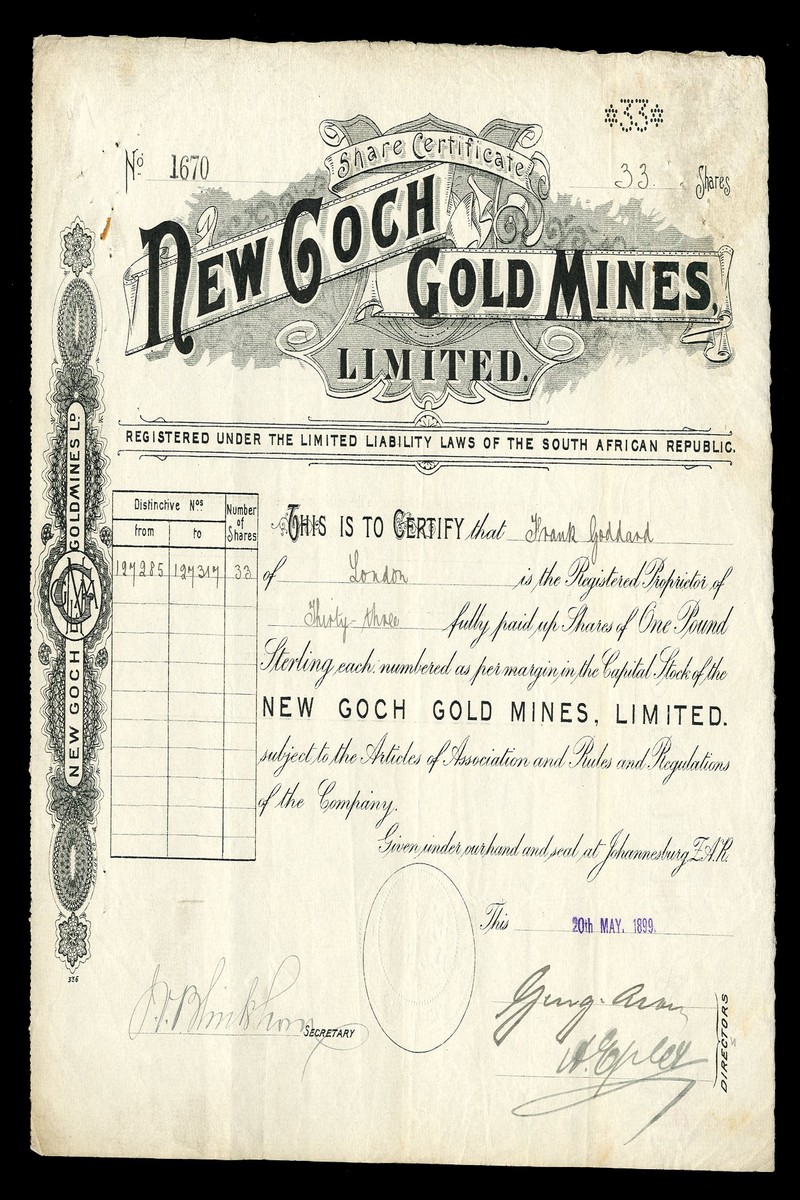 *33*
Share Certificate
No 1670
33. Shares
NEW GOCH
GOLD MINES,
LIMITED.
REGISTERED UNDER THE LIMITED LIABILITY LAWS OF THE SOUTH AFRICAN REPUBLIC.
NEW GOCH GOLDMINES LD
Distinctive Nos
Number of Shares
from to
127285 127317 33
THIS IS TO CERTIFY that Frank Goddard
of London is the Registered Proprietor of
Thirty-three fully paid up Shares of One Pound
Sterling each, numbered as per margin, in the Capital Stock of the
NEW GOCH GOLD MINES, LIMITED.
subject to the Articles of Association and Rules and Regulations
of the Company.
Given under our hand and seal at Johannesburg Z.A.R.
This 20th MAY. 1899.
336
SECRETARY
DIRECTORS